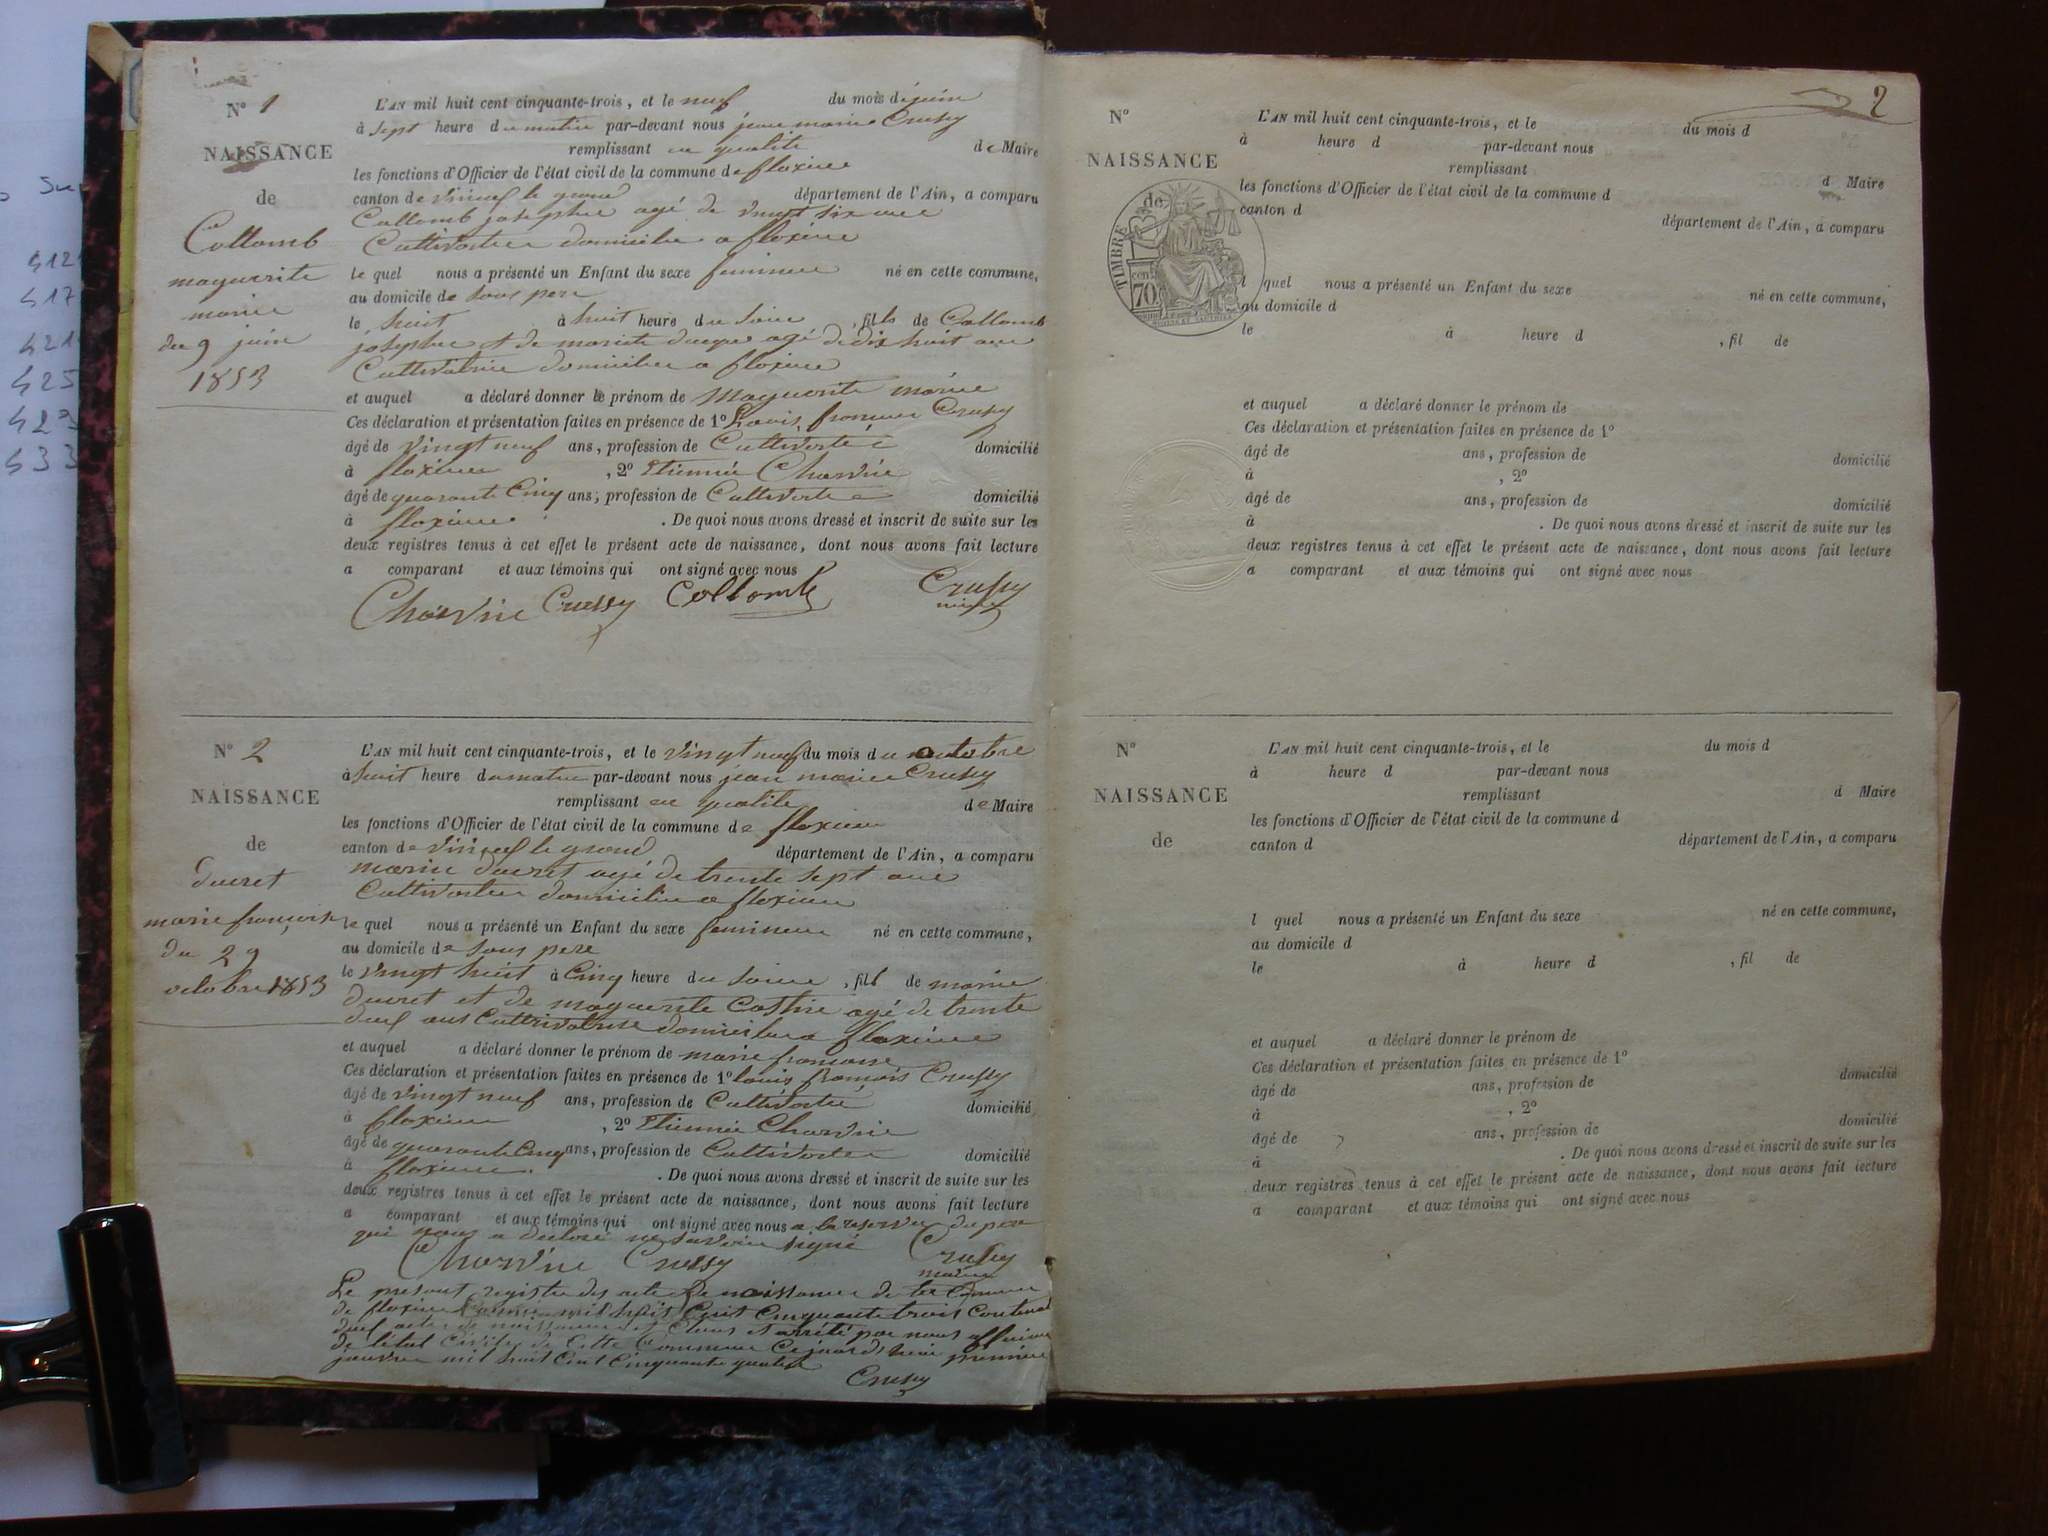 N° 1
NAISSANCE
de
Collomb
marguerite
marie
du 9 juin
1853
L'AN mil huit cent cinquante-trois, et le neuf du mois de juin
à sept heure du matin par-devant nous jean marie Crussy
remplissant en qualite de Maire
les fonctions d'Officier de l'état civil de la commune de floxieu
canton de virieu le grand département de l'Ain, a comparu
Collomb josephe agé de vingt six ans
Cultivateur domicilie a floxieu
le quel nous a présenté un Enfant du sexe feminin né en cette commune,
au domicile de sous pere
le huit à huit heure du soire, fille de Collomb
josephe et de mariete agé de dix huit ans
Cultivatrice domicilie a floxieu
et auquel a déclaré donner le prénom de marguerite marie
Ces déclaration et présentation faites en présence de 1° Louis francois Crussy
âgé de vingt neuf ans, profession de Cultivateur domicilié
à floxieu, 2° Etienne Charvin
âgé de quarante Cinq ans, profession de Cultivateur domicilié
à floxieu. De quoi nous avons dressé et inscrit de suite sur les
deux registres tenus à cet effet le présent acte de naissance, dont nous avons fait lecture
a comparant et aux témoins qui ont signé avec nous
Charvin Crussy Collomb Crussy
maire
N° 2
NAISSANCE
de
ducret
marie francoise
du 29
octobre 1853
L'AN mil huit cent cinquante-trois, et le vingt neuf du mois du octobre
à huit heure du matin par-devant nous jean marie Crussy
remplissant en qualite de Maire
les fonctions d'Officier de l'état civil de la commune de floxieu
canton de virieu le grand département de l'Ain, a comparu
marie ducret agé de trente sept ans
Cultivateur domicilie a floxieu
le quel nous a présenté un Enfant du sexe feminin né en cette commune,
au domicile de sous pere
le vingt huit à Cinq heure du soire, fille de marie
ducret et de marguerite agé de trente
deux ans Cultivatrise domicilie a floxieu
et auquel a déclaré donner le prénom de marie francoise
Ces déclaration et présentation faites en présence de 1° louis francois Crussy
âgé de vingt neuf ans, profession de Cultivateur domicilié
à floxieu, 2° Etienne Charvin
âgé de quarante Cinq ans, profession de Cultivateur domicilié
à floxieu. De quoi nous avons dressé et inscrit de suite sur les
deux registres tenus à cet effet le présent acte de naissance, dont nous avons fait lecture
a comparant et aux témoins qui ont signé avec nous a la reserve du pere
qui nous a declaré ne savoir signé
Charvin Crussy Crussy
maire
Le present registre des actes de naissance de la Commune
de floxieu année mil huit Cent Cinquante trois Contenant
deux actes de naissance Claus et arrété par nous officier
de létat Civile de Cette Commune Cejourd'huie premier
janvier mil huit Cent Cinquante quatre
Crussy
2
N°
NAISSANCE
de
TIMBRE
70
L'AN mil huit cent cinquante-trois, et le du mois d
à heure d par-devant nous
remplissant d Maire
les fonctions d'Officier de l'état civil de la commune d
canton d département de l'Ain, a comparu
l quel nous a présenté un Enfant du sexe né en cette commune,
au domicile d
le à heure d , fil de
et auquel a déclaré donner le prénom de
Ces déclaration et présentation faites en présence de 1°
âgé de ans, profession de domicilié
à , 2°
âgé de ans, profession de domicilié
à . De quoi nous avons dressé et inscrit de suite sur les
deux registres tenus à cet effet le présent acte de naissance, dont nous avons fait lecture
a comparant et aux témoins qui ont signé avec nous
N°
NAISSANCE
de
L'AN mil huit cent cinquante-trois, et le du mois d
à heure d par-devant nous
remplissant d Maire
les fonctions d'Officier de l'état civil de la commune d
canton d département de l'Ain, a comparu
l quel nous a présenté un Enfant du sexe né en cette commune,
au domicile d
le à heure d , fil de
et auquel a déclaré donner le prénom de
Ces déclaration et présentation faites en présence de 1°
âgé de ans, profession de domicilié
à , 2°
âgé de ans, profession de domicilié
à . De quoi nous avons dressé et inscrit de suite sur les
deux registres tenus à cet effet le présent acte de naissance, dont nous avons fait lecture
a comparant et aux témoins qui ont signé avec nous